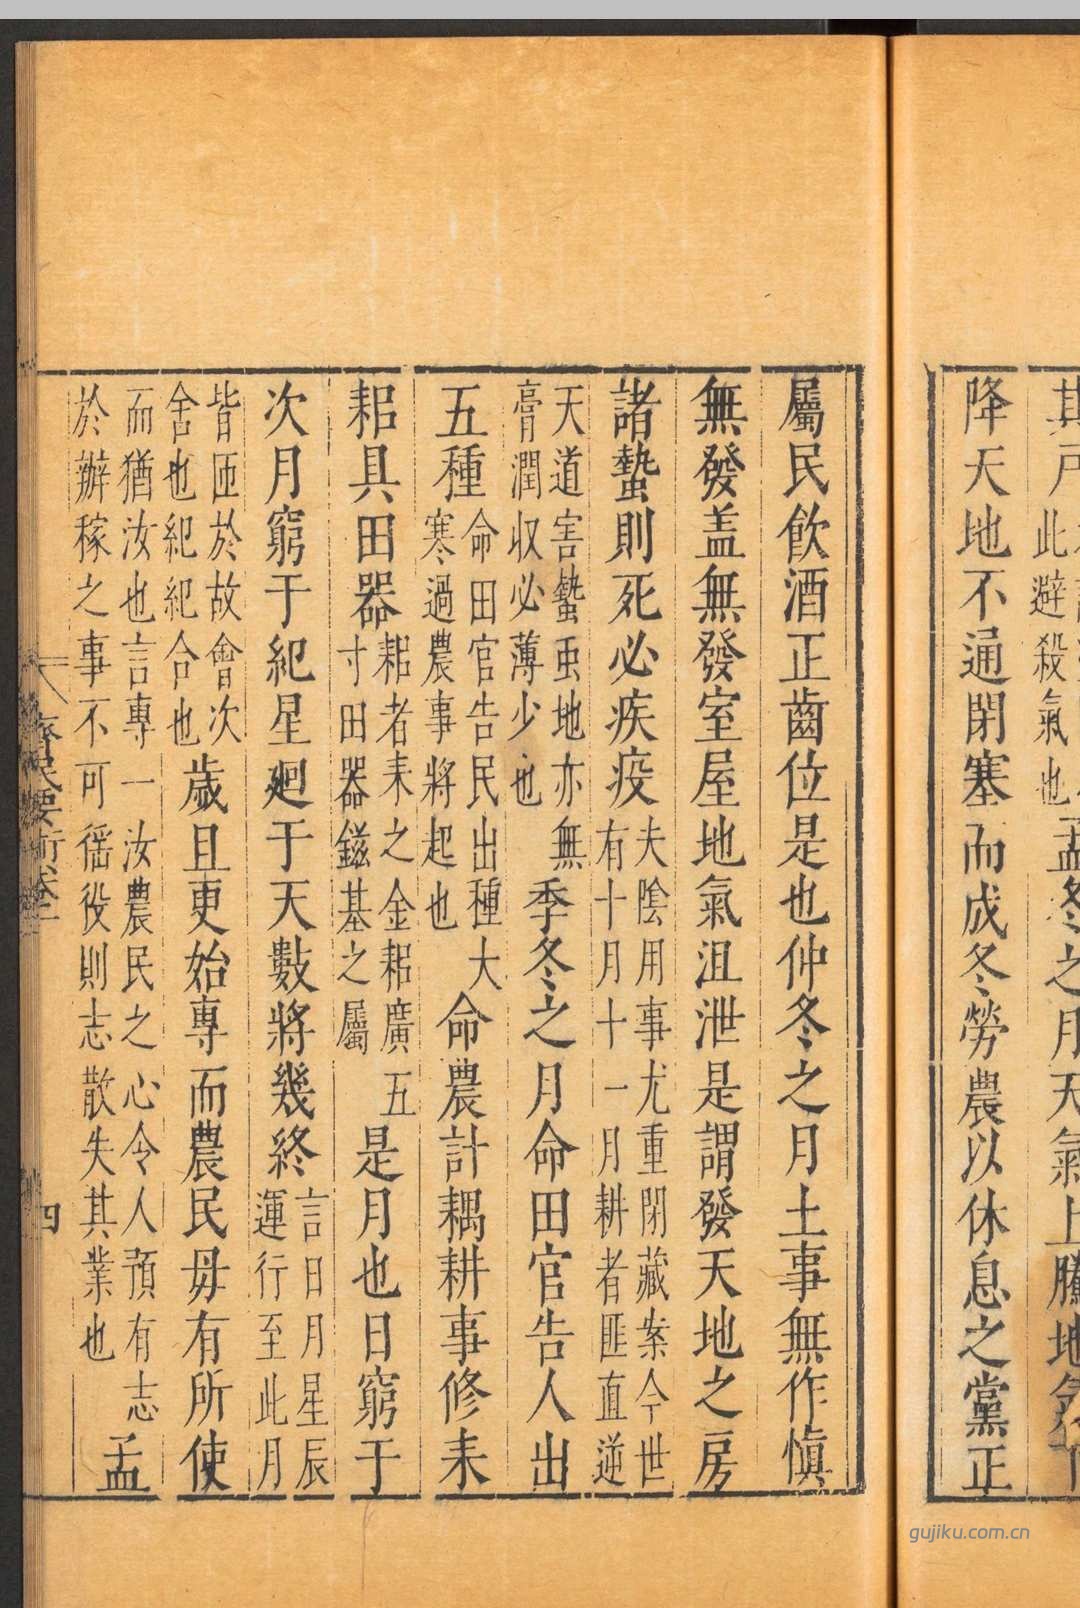 其戶此避殺氣也孟冬之月天氣上騰地氣下
降天地不通閉塞而成冬勞農以休息之黨正
屬民飲酒正齒位是也仲冬之月土事無作慎
無發盖無發室屋地氣沮泄是謂發天地之房
諸蟄則死必疾疫夫陰用事尤重閉藏案今世有十月十一月耕者匪直逆
天道害蟄虫地亦無膏潤収必薄少也季冬之月命田官告人出
五種命田官告民出種大寒過農事將起也命農計耦耕事修耒
耜具田器耜者耒之金耜廣五寸田器鎡基之屬是月也日窮于
次月窮于紀星廻于天數將幾終言日月星辰運行至此月
皆匝於故會次舍也紀紀合也歲且更始專而農民毋有所使
而猶汝也言專一汝農民之心令人預有志於辦稼之事不可徭役則志散失其業也孟
齊民要術卷
四
gujiku.com.cn